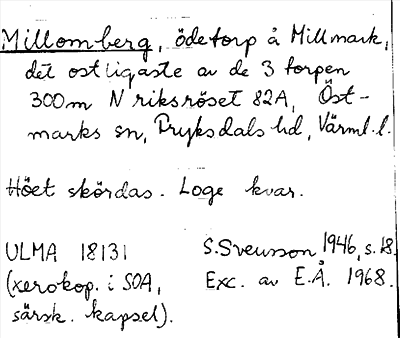 Millomberg, ödetorp å Millmark,
det ostligaste av de 3 torpen
300m N riksröset 82A, Öst-
marks sn, Fryksdals hd, Värml. l.
Höet skördas. Loge kvar.
ULMA 18131 S. Svensson 1946, s. 18.
(xerokop. i SOA, Exc. av E.Å. 1968.
särsk. kapsel).